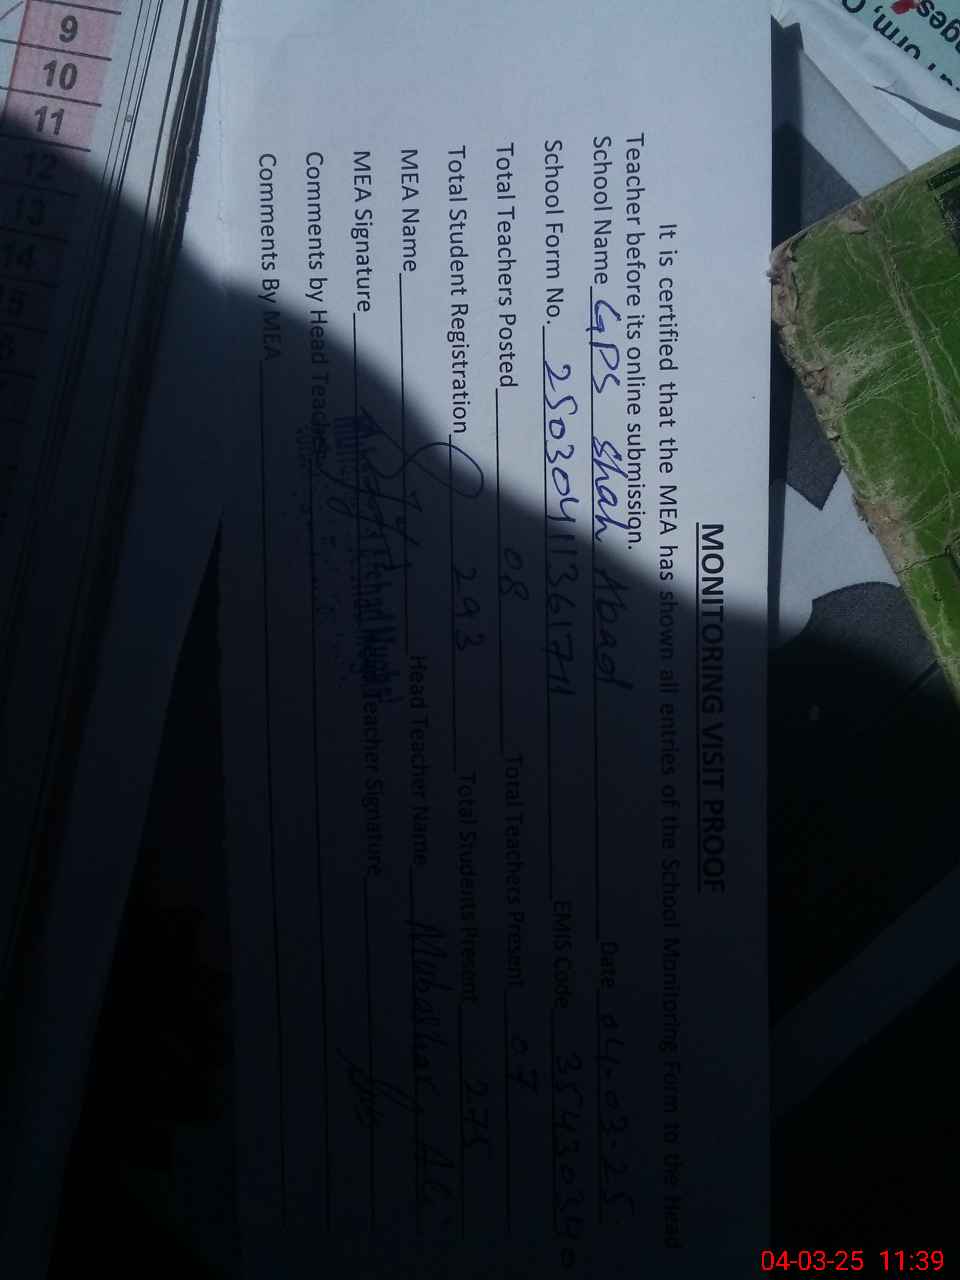 MONITORING VISIT PROOF
It is certified that the MEA has shown all entries of the School Monitoring Form to the Head
Teacher before its online submission.
School Name GPS Shah Abad Date 04-03-25
School Form No. 25030411361711 EMIS Code 35430340
Total Teachers Posted 08 Total Teachers Present 07
Total Student Registration 293 Total Students Present 275
MEA Name Head Teacher Name Ali
MEA Signature Teacher Signature
Comments by Head Teacher
Comments By MEA
9
10
11
12
13
14
04-03-25 11:39